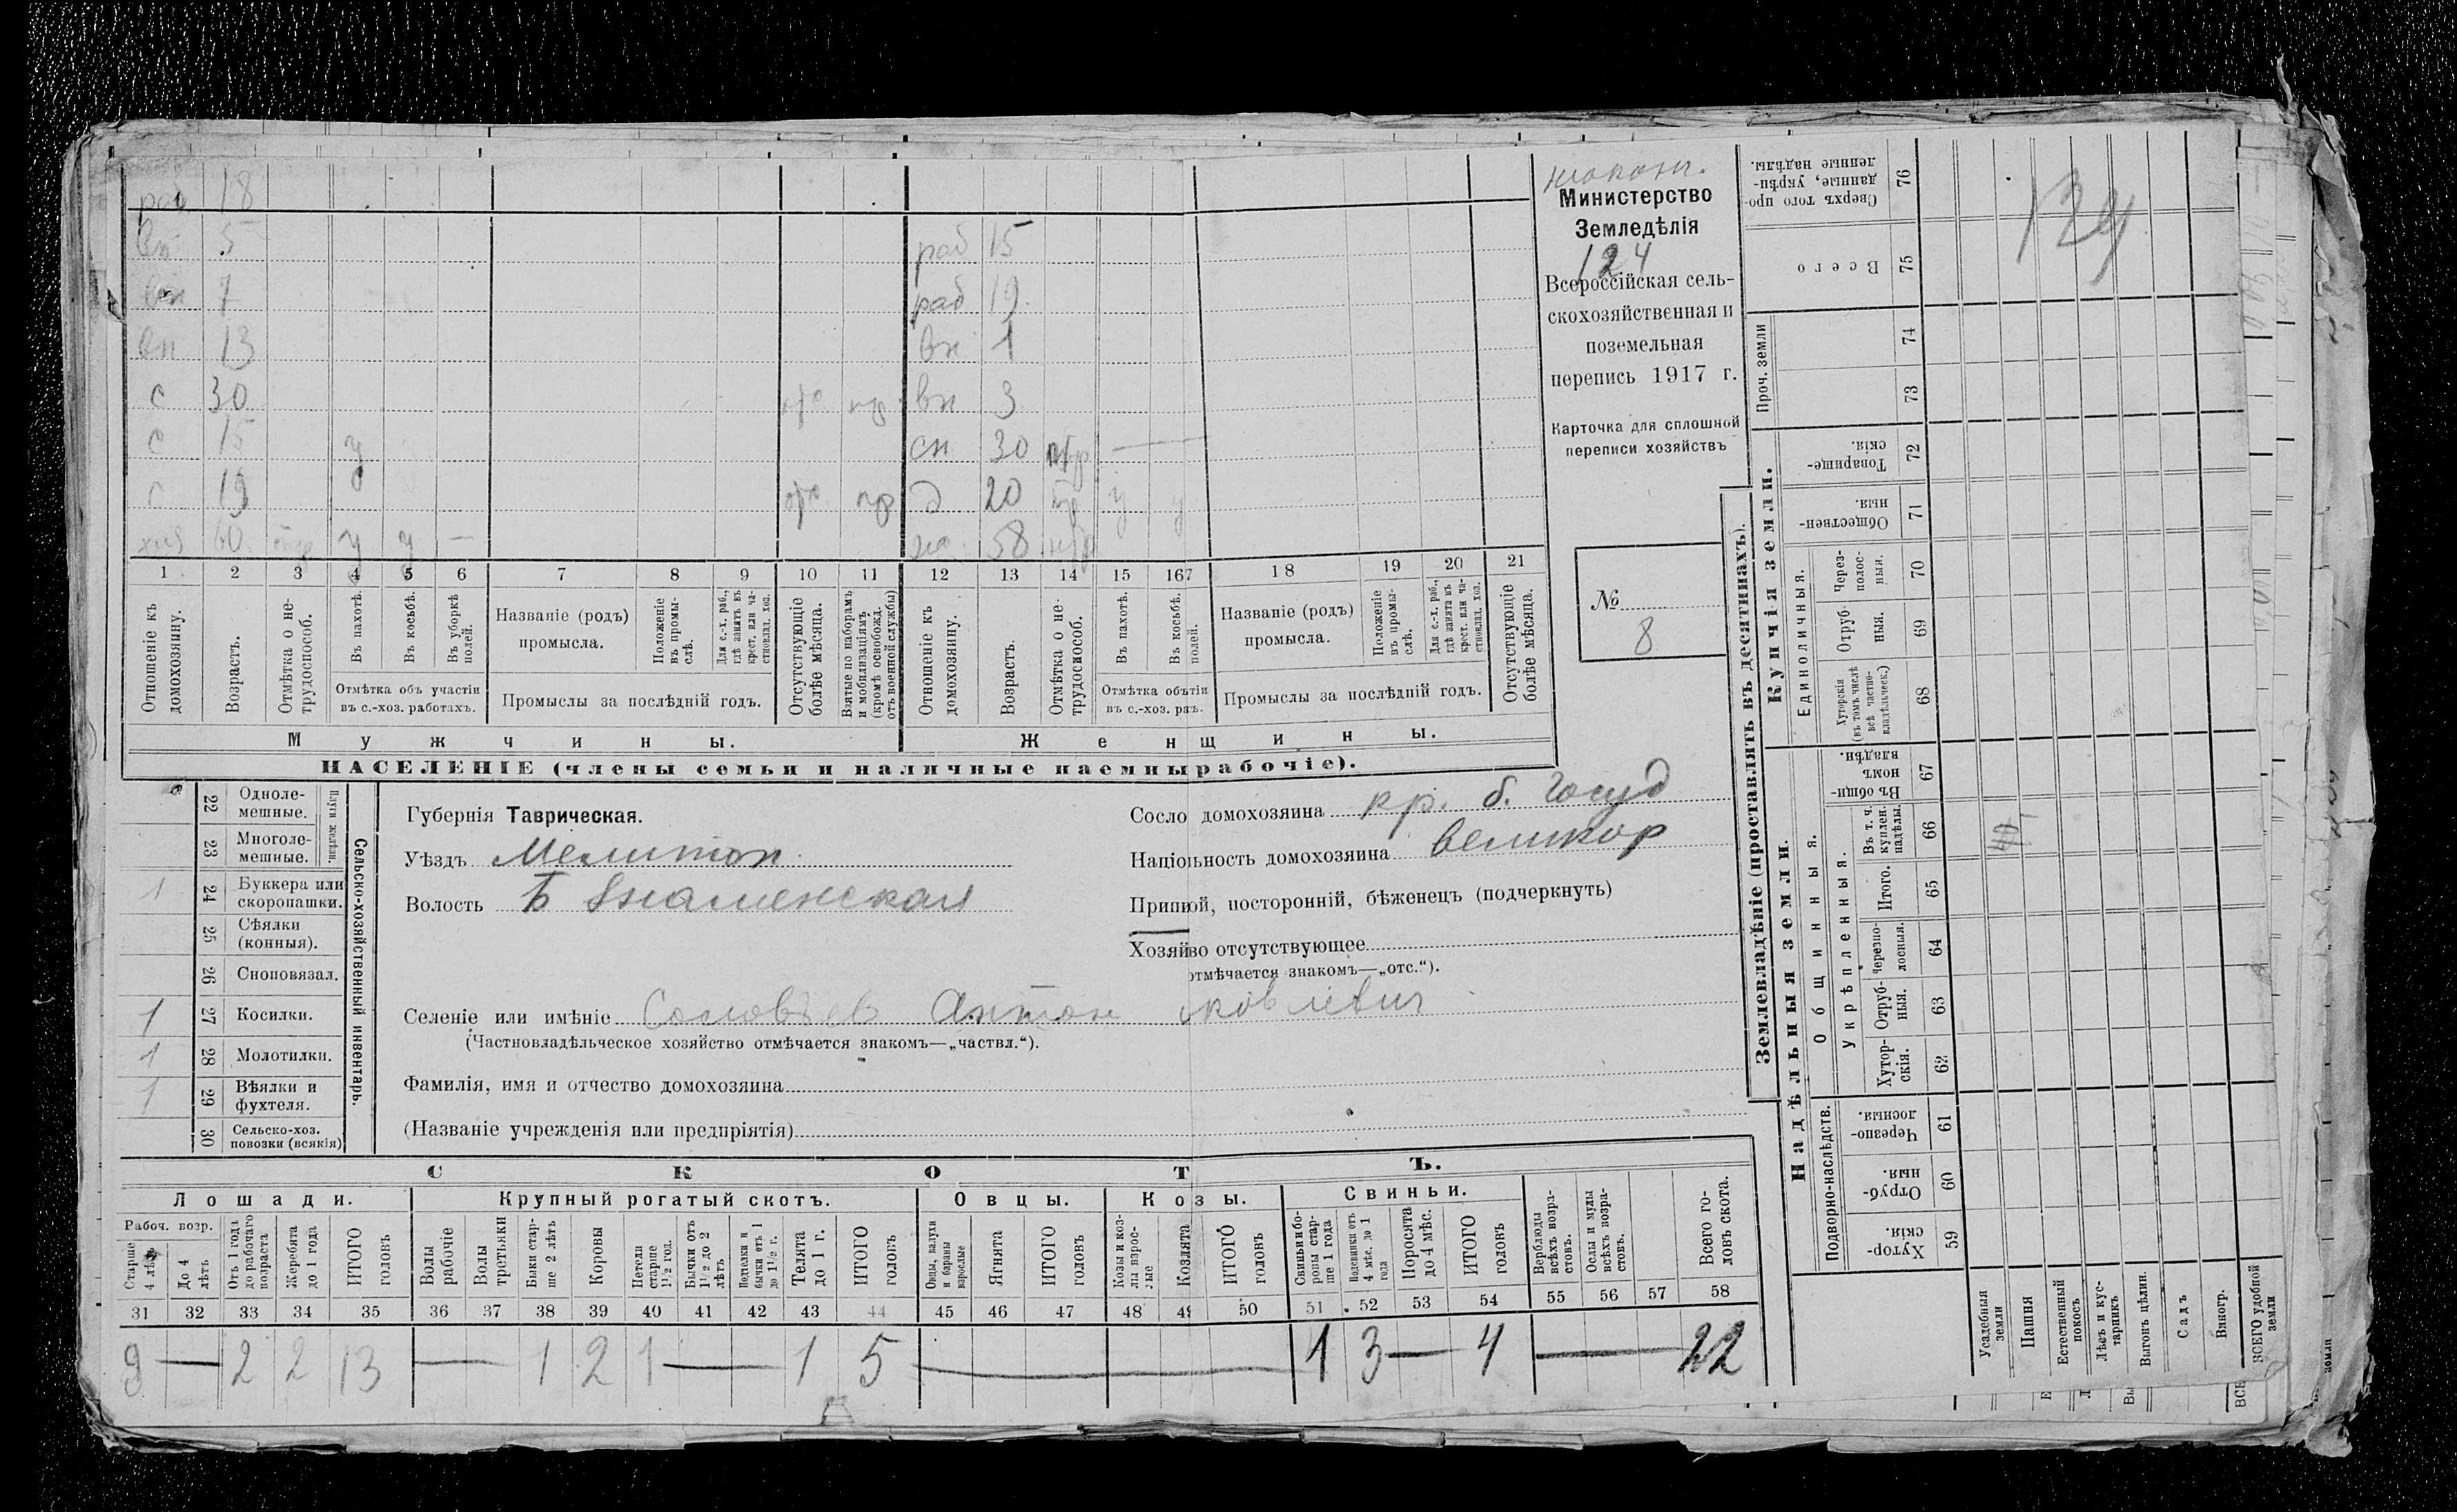 раб 18
вн 5 раб 15
вн 7 раб 19
вн 13 вн 1
с 30 отс. пр. вн 3
с 15 у сн 30 —
с 19 отс. пр. д 20 у у
хоз 60 у у — 58
1 2 3 4 5 6 7 8 9 10 11 12 13 14 15 167 18 19 20 21
Отношеніе къ домохозяину.
Возрастъ.
Отмѣтка о нетрудоспособ.
Въ пахотѣ.
Въ косьбѣ.
Въ уборкѣ полей.
Отмѣтка объ участіи въ с.-хоз. работахъ.
Названіе (родъ) промысла.
Положеніе въ промыслѣ.
Для с.-х. раб., гдѣ занятъ въ крест. или частновлад. хоз.
Промыслы за послѣдній годъ.
Отсутствующіе болѣе мѣсяца.
Взятые по наборамъ и мобилизаціямъ (кромѣ освобожд. отъ военной службы)
Отношеніе къ домохозяину.
Возрастъ.
Отмѣтка о нетрудоспособ.
Въ пахотѣ.
Въ косьбѣ.
полей.
Отмѣтка объ тіи
въ с.-хоз. р
Названіе (родъ) промысла.
Положеніе въ промыслѣ.
Для с.-х. раб., гдѣ занята въ крест. или частновлад. хоз.
Промыслы за послѣдній годъ.
Отсутствующіе болѣе мѣсяца.
Мужчины.
Женщины.
НАСЕЛЕНІЕ (члены семьи и наличные наемны рабочіе).
Министерство
Земледѣлія
124
Всероссійская сель-
скохозяйственная и
поземельная
перепись 1917 г.
Карточка для сплошной
переписи хозяйствъ
№
8
22 Однолемешные.
23 Многолемешные.
Плуги желѣзн.
1 24 Буккера или скоропашки.
25 Сѣялки (конныя).
26 Сноповязал.
1 27 Косилки.
1 28 Молотилки.
1 29 Вѣялки и фухтеля.
30 Сельско-хоз. повозки (всякія)
Сельско-хозяйственный инвентарь.
Губернія Таврическая.
Уѣздъ Мелитоп.
Волость Б Знаменская
Сосло домохозяина кр. б. госуд
Націо ьность домохозяина великор
Припи ой, посторонній, бѣженецъ (подчеркнуть)
Хозяй во отсутствующее
отмѣчается знакомъ—„отс.“).
Селеніе или имѣніе Соловьев Антон ковлевич
(Частновладѣльческое хозяйство отмѣчается знакомъ—„частвл.“).
Фамилія, имя и отчество домохозяина
(Названіе учрежденія или предпріятія)
СКОТЪ.
Лошади.
Рабоч. возр.
Старше 4 лѣтъ
До 4 лѣтъ
Отъ 1 года до рабочаго возраста
Жеребята до 1 года
ИТОГО головъ
Крупный рогатый скотъ.
Волы рабочіе
Волы третьяки
Быки старше 2 лѣтъ
Коровы
Нетели старше 1½ год.
Бычки отъ 1½ до 2 лѣтъ
Подтелки и бычки отъ 1 до 1½ г.
Телята до 1 г.
ИТОГО головъ
Овцы.
Овцы, валухи и бараны взрослые
Ягнята
ИТОГО головъ
Козы.
Козы и козлы взрослые
Козлята
ИТОГО головъ
Свиньи.
Свиньи и боровы старше 1 года
Подсвинки отъ 4 мѣс. до 1 года
Поросята до 4 мѣс.
ИТОГО головъ
Верблюды всѣхъ возрастовъ.
Ослы и мулы всѣхъ возрастовъ.
Всего головъ скота.
31 32 33 34 35 36 37 38 39 40 41 42 43 44 45 46 47 48 49 50 51 52 53 54 55 56 57 58
9 — 2 2 13 — 1 2 1 — 1 5 — 1 3 — 4 — 22
Землевладѣніе (проставлять въ десятинахъ).
Надѣльныя земли.
Подворно-наслѣдств.
Хуторскія 59
Отрубныя 60
Черезполосныя 61
Общинныя.
Укрѣпленныя.
Хуторскія. 62
Отрубныя. 63
Черезполосныя. 64
Итого. 65
Въ т. ч. куплен. надѣлы. 66
Въ общинномъ владѣн. 67
Купчія земли.
Единоличныя.
Хуторскія (въ томъ числѣ всѣ частновладѣльческ.) 68
Отрубныя. 69
Черезполосныя. 70
Общественныя. 71
Товарищескія. 72
Проч. земли
73
74
Всего 75
Сверхъ того проданные, укрѣпленные надѣлы. 76
Усадебныя земли
Пашня
Естественный покосъ
Лѣсъ и кустарникъ
Выгонъ цѣлин.
Садъ
Виногр.
ВСЕГО удобной земли